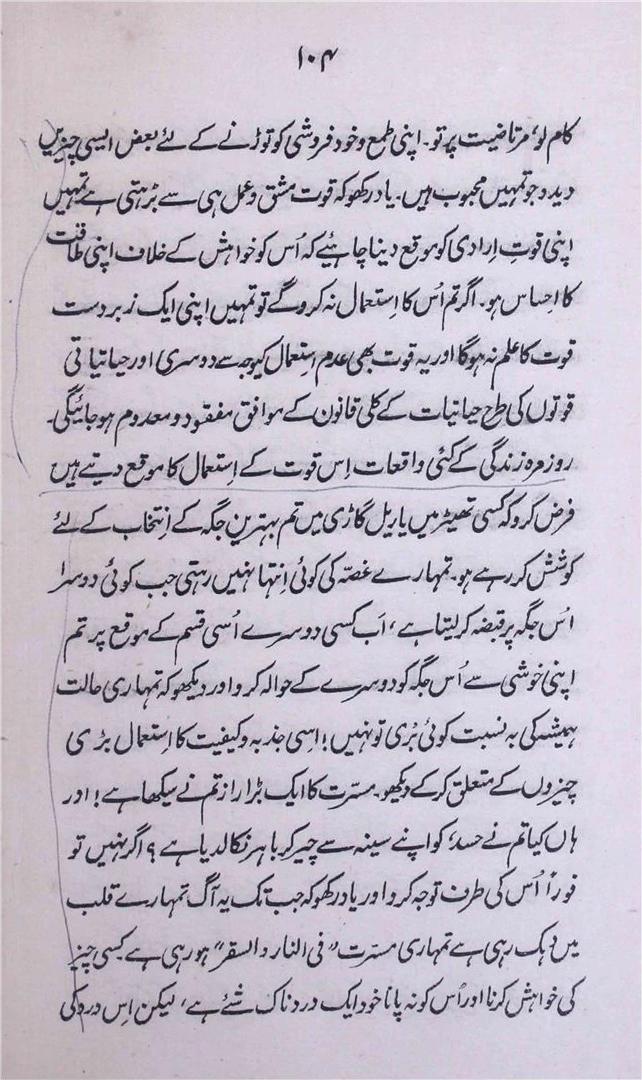 ۱۰۴
کام لو، مرتاضیت پر تو۔ اپنی طمع و خود فروشی کو توڑنے کے لئے بعض ایسی چیزیں
دیدو جو تمہیں محبوب ہیں۔ یاد رکھو کہ قوت مشق و عمل ہی سے بڑہتی ہے تمہیں
اپنی قوتِ اِرادی کو موقع دینا چاہئیے کہ اُس کو خواہش کے خلاف اپنی طاقت
کا اِحساس ہو۔ اگر تم اُس کا اِستعمال نہ کرو گے تو تمہیں اپنی ایک زبردست
قوت کا علم نہ ہوگا اور یہ قوت بھی عدم اِستعمال کیوجہ سے دوسری اور حیاتیاتی
قوتوں کی طرح حیاتیات کے کلی قانون کے موافق مفقود و معدوم ہو جائیگی۔
روز مرہ زندگی کے کئی واقعات اِس قوت کے اِستعمال کا موقع دیتے ہیں
فرض کرو کہ کسی تھیٹر میں یا ریل گاڑی میں تم بہترین جگہ کے اِنتخاب کے لئے
کوشش کر رہے ہو۔ تمہارے غصّہ کی کوئی اِنتہا نہیں رہتی جب کوئی دوسرا
اُس جگہ پر قبضہ کر لیتا ہے، اَب کسی دوسرے اُسی قسم کے موقع پر تم
اپنی خوشی سے اُس جگہ کو دوسرے کے حوالہ کرو اور دیکھو کہ تمہاری حالت
ہمیشہ کی بہ نسبت کوئی بُری تو نہیں! اِسی جذبہ و کیفیت کا اِستعمال بڑی
چیزوں کے متعلق کرکے دیکھو۔ مسرّت کا ایک بڑا راز تم نے سیکھا ہے! اور
ہاں کیا تم نے حسد، کو اپنے سینہ سے چیر کر باہر نکالدیا ہے؟ اگر نہیں تو
فوراً اُس کی طرف توجہ کرو اور یاد رکھو کہ جب تک یہ آگ تمہارے قلب
میں دہک رہی ہے تمہاری مسرّت "فی النار والسقر" ہو رہی ہے کسی چیز
کی خواہش کرنا اور اُس کو نہ پانا خود ایک دردناک شئے ہے، لیکن اِس درد کی